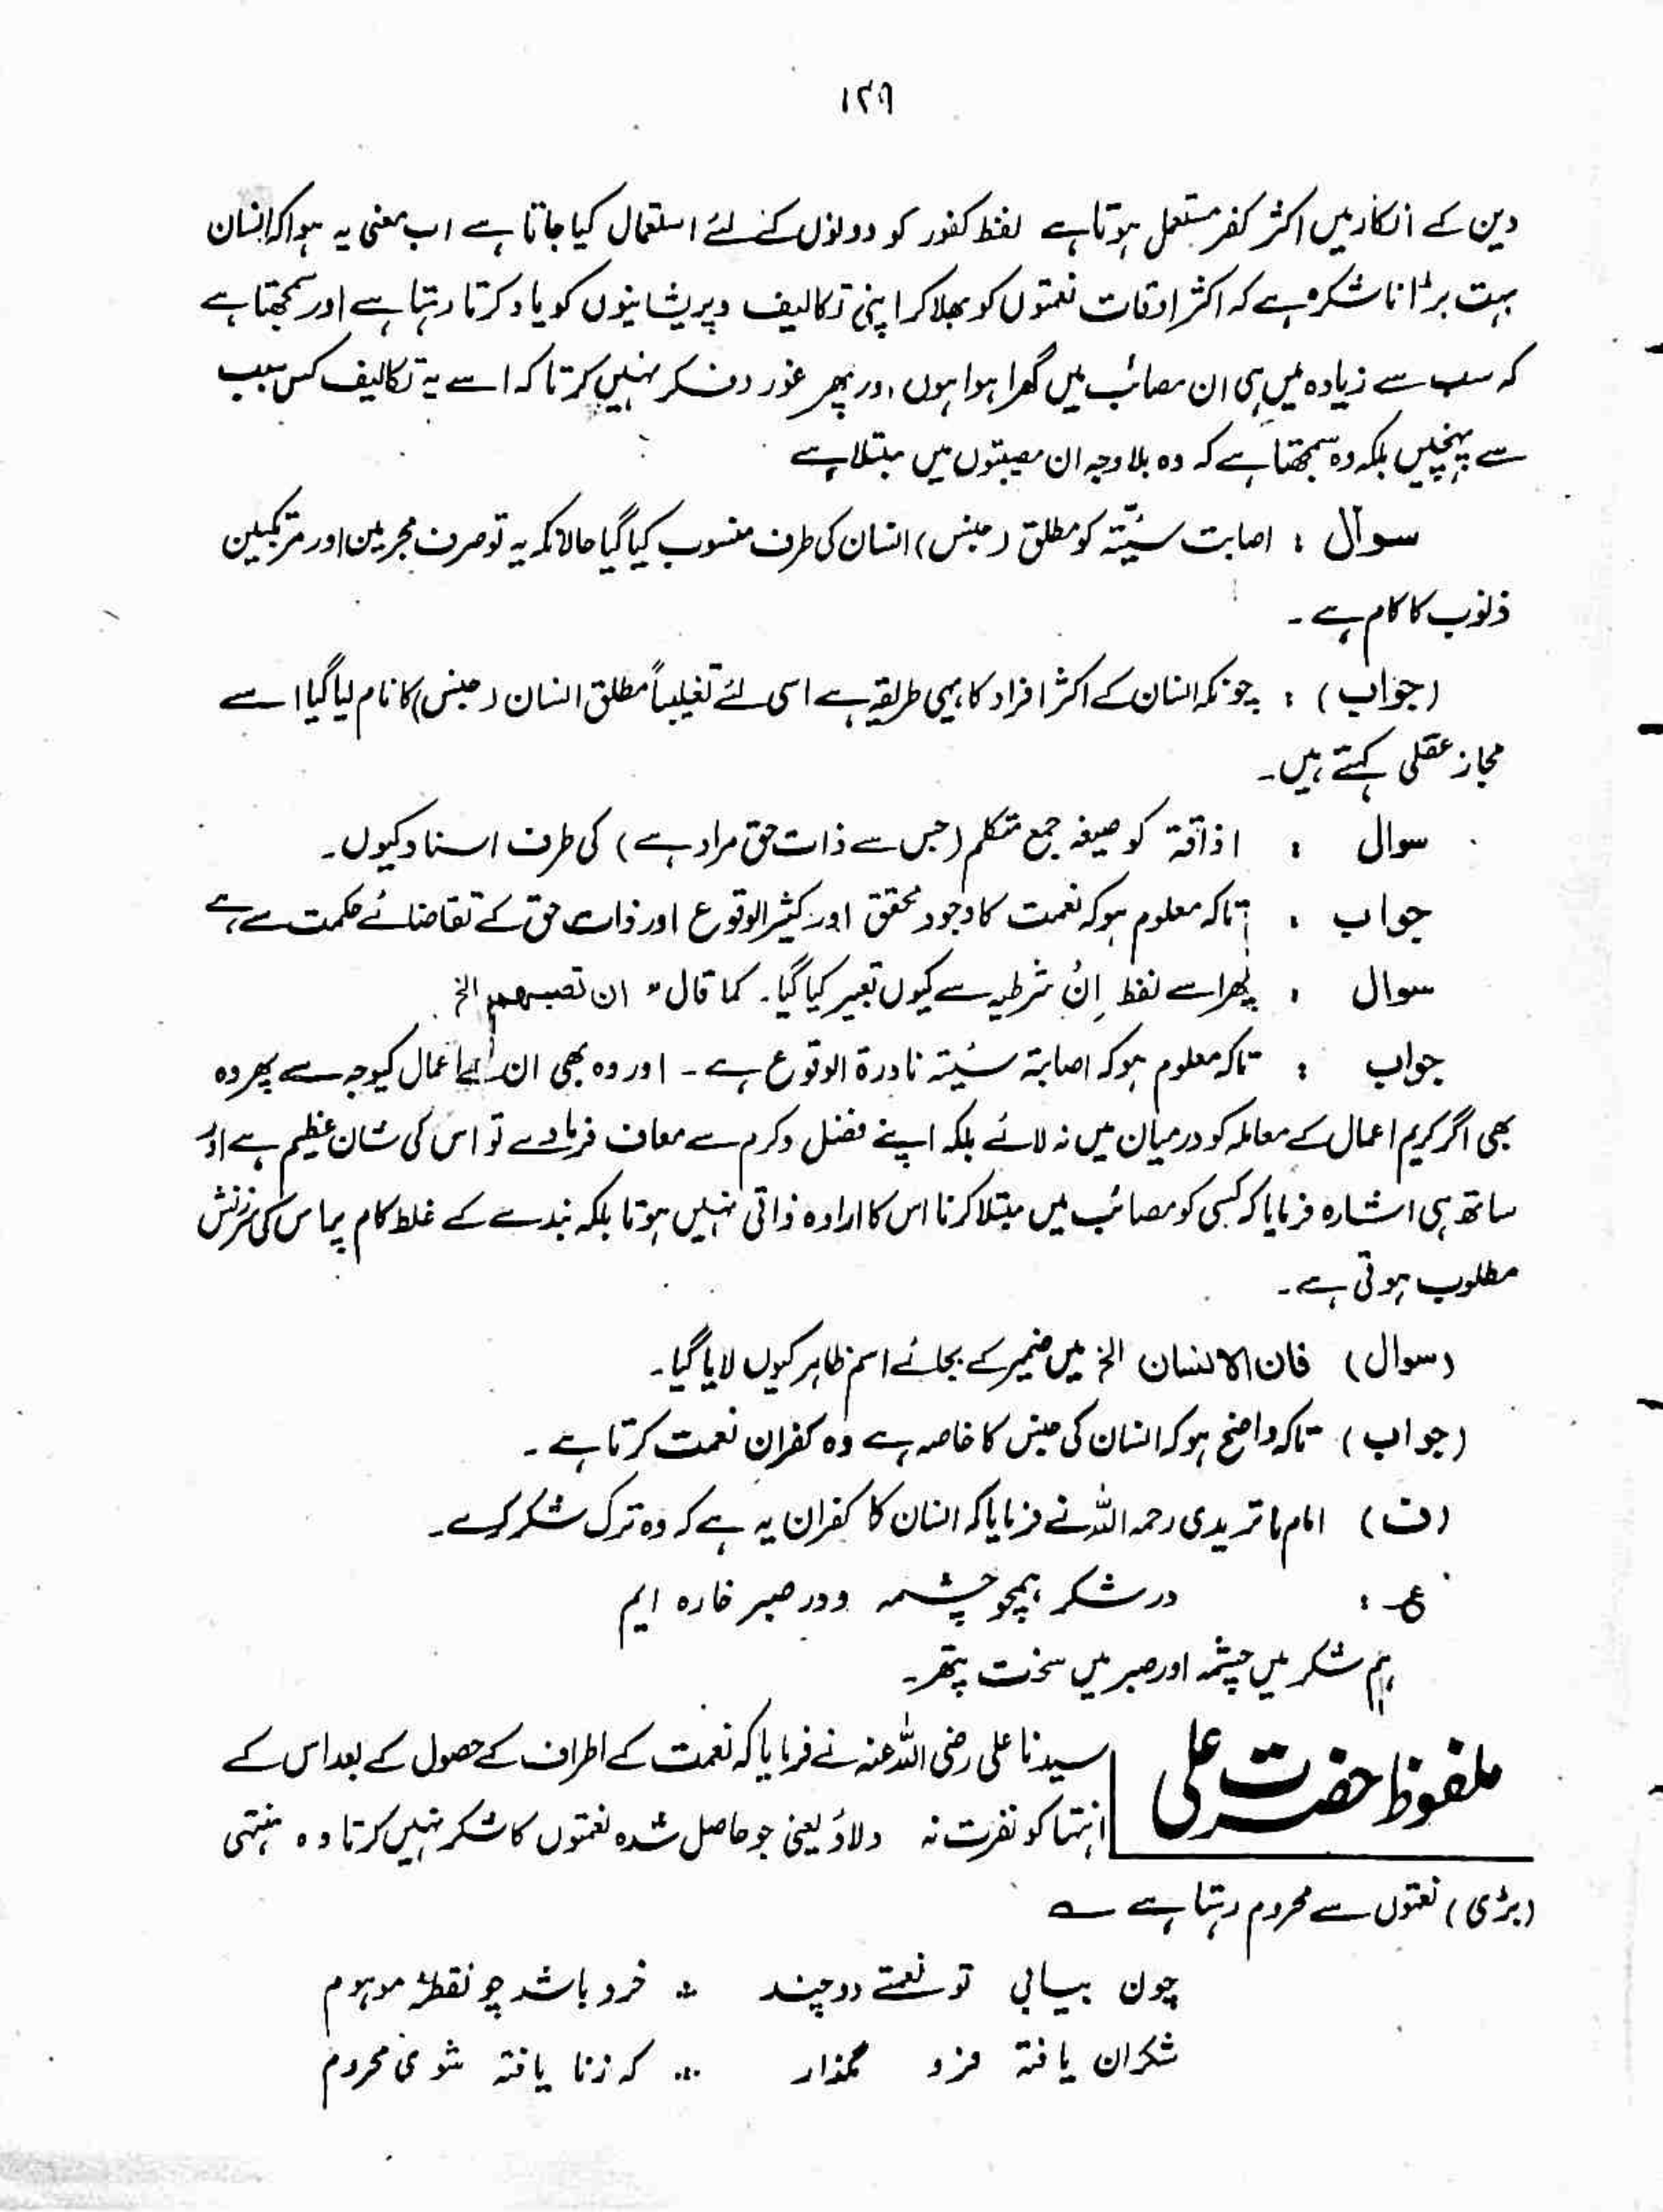 ۱۲۹
دین کے انکار میں اکثر کفر مستعمل ہوتا ہے لفظ کفور کو دونوں کے لئے استعمال کیا جاتا ہے اب معنی یہ ہوا کہ انسان
بہت بڑا ناشکرہ ہے کہ اکثر اوقات نعمتوں کو بھلا کر اپنی تکالیف وپریشانیوں کو یاد کرتا رہتا ہے اور سمجھتا ہے
کہ سب سے زیادہ میں ہی ان مصائب میں گھرا ہوا ہوں، اور پھر غور وفکر نہیں کرتا کہ اسے یہ تکالیف کس سبب
سے پہنچیں بلکہ وہ سمجھتا ہے کہ وہ بلاوجہ ان مصیبتوں میں مبتلا ہے
سوال : اصابت سیّئتہ کو مطلق (جنس) انسان کی طرف منسوب کیا گیا حالانکہ یہ تو صرف مجرمین اور مرتکبین
ذنوب کا کام ہے ۔
(جواب) : چونکہ انسان کے اکثر افراد کا یہی طریقہ ہے اسی لئے تغلیباً مطلق انسان (جنس) کا نام لیا گیا اسے
مجاز عقلی کہتے ہیں۔
سوال : اذاقتہ کو صیغہ جمع متکلم (جس سے ذات حق مراد ہے) کی طرف اسناد کیوں۔
جواب : تاکہ معلوم ہو کہ نعمت کا وجود محقق اور کثیر الوقوع اور ذات حق کے تقاضائے حکمت سے ہے
سوال : پھر اسے لفظ اِنْ شرطیہ سے کیوں تعبیر کیا گیا۔ کما قال " ان تصبهم الخ
جواب : تاکہ معلوم ہو کہ اصابتہ سئیتہ نادرۃ الوقوع ہے ۔ اور وہ بھی ان کے اعمال کیوجہ سے پھر وہ
بھی اگر کریم اعمال کے معاملہ کو درمیان میں نہ لائے بلکہ اپنے فضل وکرم سے معاف فرمادے تو اس کی شان عظیم ہے اور
ساتھ ہی اشارہ فرمایا کہ کسی کو مصائب میں مبتلا کرنا اس کا ارادہ ذاتی نہیں ہوتا بلکہ بندے کے غلط کام پر اس کی سرزنش
مطلوب ہوتی ہے ۔
(سوال) فان الانسان الخ میں ضمیر کے بجائے اسم ظاہر کیوں لایا گیا۔
(جواب) تاکہ واضح ہو کہ انسان کی جنس کا خاصہ ہے وہ کفران نعمت کرتا ہے ۔
(ف) امام ماتریدی رحمہ اللہ نے فرمایا کہ انسان کا کفران یہ ہے کہ وہ ترک شکر کرے۔
ع : در شکر ہمچو چشمہ ودر صبر خارہ ایم
ہم شکر میں چشمہ اور صبر میں سخت پتھر۔
ملفوظ حضرت علی
سیدنا علی رضی اللہ عنہ نے فرمایا کہ نعمت کے اطراف کے حصول کے بعد اس کے
انتہا کو نفرت نہ دلاؤ یعنی جو حاصل شدہ نعمتوں کا شکر نہیں کرتا وہ منتہی
(بڑی) نعتوں سے محروم رہتا ہے ؎
چون بیابی تو نعمتے دو چند ؞ خرد باشد چو نقطۂ موہوم
شکران یافتہ فرو مگذار ؞ کہ زنا یافتہ شوی محروم